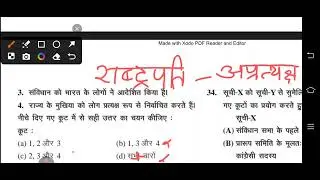 Made with Xodo PDF Reader and Editor
राष्ट्रपति - अप्रत्यक्ष
3. संविधान को भारत के लोगों ने आदेशित किया है।
4. राज्य के मुखिया को लोग प्रत्यक्ष रूप से निर्वाचित करते हैं।
नीचे दिए गए कूट में से सही उत्तर का चयन कीजिए :
कूट :
(a) 1, 2 और 3
(b) 1, 3 और 4
(c) 2, 3 और 4
(d) सभी चारों
34. सूची-X को सूची-Y से सुमेलि
गए कूटों का प्रयोग करते हु
सूची-X
(A) संविधान सभा के पहले
(B) प्रारूप समिति के मूलतः
कांग्रेसी सदस्य